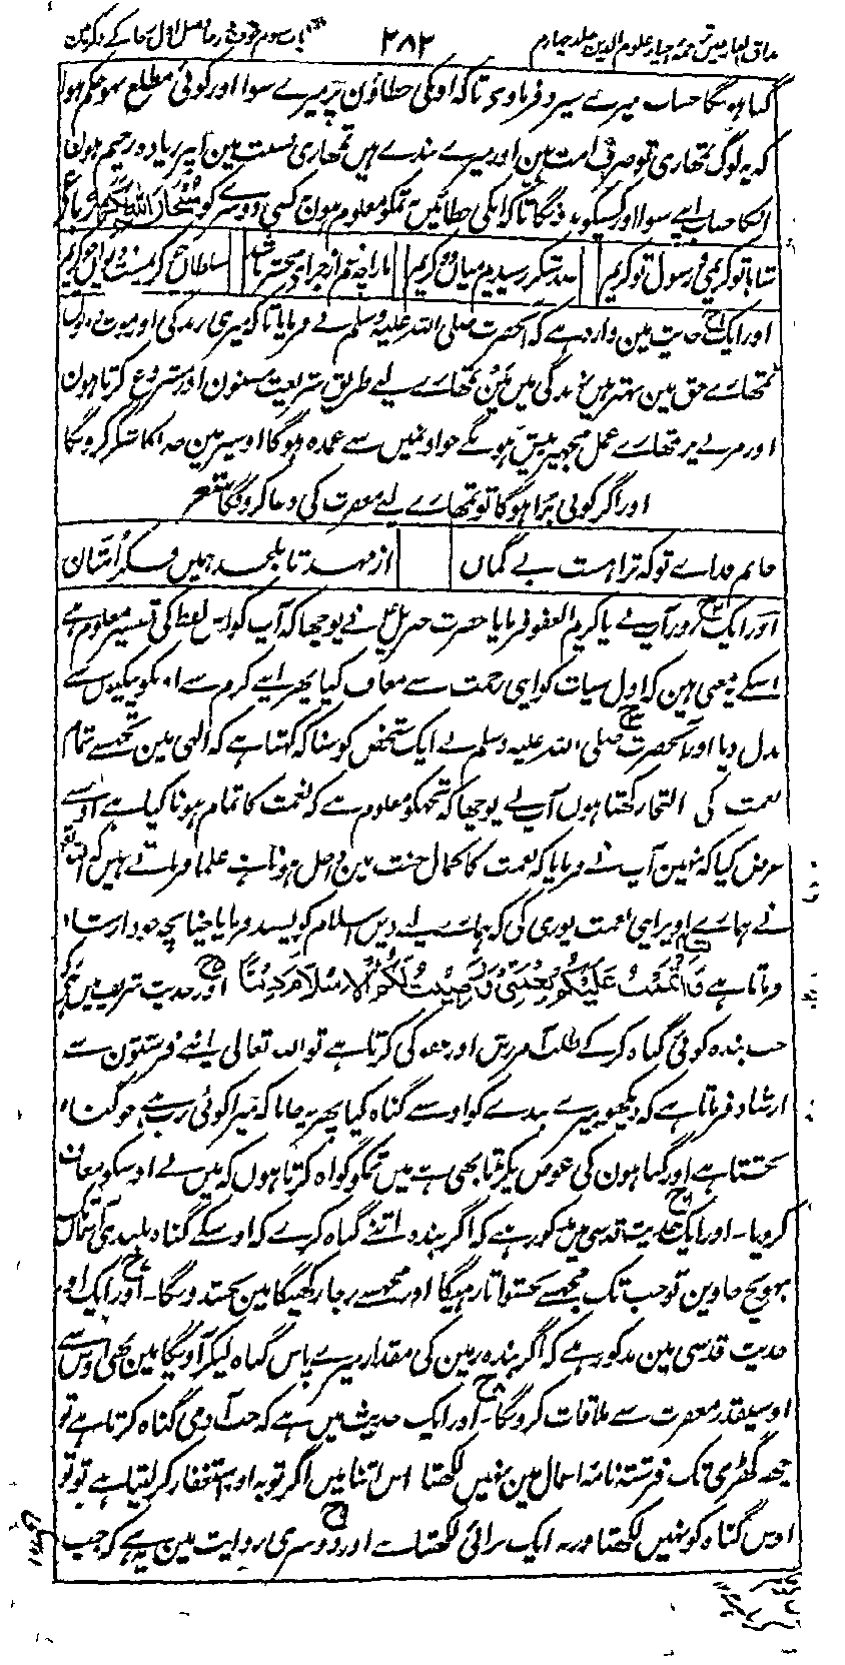 مذاق العارفین ترجمہ احیاء علوم الدین جلد چہارم
۲۸۲
باب سوم خوف و رجا فصل اول رجا کے ذکر مین
گناہونکا حساب میرے سپرد فرماوی تاکہ اونکی خطاؤن پر میرے سوا اور کوئی مطلع نہو حکم ہوا
کہ یہ لوگ تمھاری تو صرف امت ہین اور میرے بندے ہین تمھاری نسبت مین اپر زیادہ رحیم ہون
انکا حساب اپنے سوا اور کسیکو نہ دونگا تاکہ انکی خطائین نہ تمکو معلوم ہون نہ کسی دوسرے کو سبحان اللہ
شاہا تو کریمی و رسول تو کریم
صد شکر رسیدیم میان دو کریم
مارا چہ غم از جرائم محشر باشد
سلطان چو کریم ست
اور ایک حدیث مین وارد ہے کہ آنحضرت صلی اللہ علیہ وسلم نے فرمایا تاکہ میری زندگی اور موت دونون
تمھارے حق مین بہتر ہین زندگی مین مین تمھارے لیے طریق شریعت مسنون اور مشروع کرتا ہون
اور مرنے پر تمھارے عمل مجھپر پیش ہونگے جو اونمین سے عمدہ ہوگا اوسپر مین خدا کا شکر کرونگا
اور اگر کوئی بُرا ہوگا تو تمھارے لیے مغفرت کی دعا کرونگا شعر
جانم فداے تو کہ ترا ہست بے گماں
از مہد تا بلحد ہمیں فکر اُمتان
اور ایک روز آپ نے یا کریم العفو فرمایا حضرت جبریل نے پوچھا کہ آپ کو اس لفظ کی تفسیر معلوم ہے
اسکے یہ معنی ہین کہ اول سیئات کو اپنی رحمت سے معاف کیا پھر اپنے کرم سے اونکو نیکیوں سے
بدل دیا اور آنحضرت صلی اللہ علیہ وسلم نے ایک شخص کو سنا کہ کہتا ہے کہ الٰہی مین تجھسے تمام
نعمت کی التجا رکھتا ہوں آپ نے پوچھا کہ تجھکو معلوم ہے کہ نعمت کا تمام ہونا کیا ہے اوسنے
عرض کیا کہ نہین آپ نے فرمایا کہ نعمت کا کمال جنت مین داخل ہونا ہے علما فرماتے ہیں کہ اللہ
نے ہمارے اوپر اپنی نعمت پوری کی کہ ہمارے لیے دین اسلام کو پسند فرمایا چنانچہ خود ارشاد
فرماتا ہے وَاَتْمَمْتُ عَلَیْکُمْ نِعْمَتِیْ وَرَضِیْتُ لَکُمُ الْاِسْلَامَ دِیْنًا اور حدیث شریف مین ہے کہ
جب بندہ کوئی گناہ کرکے طلب آمرزش اوسکی کرتا ہے تو اللہ تعالی اپنے فرشتون سے
ارشاد فرماتا ہے کہ دیکھو میرے بندے کو اوسنے گناہ کیا پھر یہ جانا کہ میرا کوئی رب ہے جو گناہ
بخشتا ہے اور گناہون کی عوض پکڑتا بھی ہے میں تمکو گواہ کرتا ہوں کہ میں نے اوسکو معاف
کردیا۔ اور ایک حدیث قدسی مین مذکور ہے کہ اگر بندہ اتنے گناہ کرے کہ اوسکے گناہ بلندی آسمان تک
پہونچ جاوین تو جب تک مجھسے بخشواتا رہیگا اور مجھسے رجا رکھیگا مین بخشدونگا۔ اور ایک اور
حدیث قدسی مین مذکور ہے کہ اگر بندہ زمین کی مقدار میرے پاس گناہ لیکر آویگا مین بھی اوس سے
اوسیقدر مغفرت سے ملاقات کرونگا۔ اور ایک حدیث میں ہے کہ جب آدمی گناہ کرتا ہے تو
چھہ گھڑی تک فرشتہ نامہ اعمال مین نہیں لکھتا اس اثنا میں اگر توبہ اور استغفار کرلیتا ہے تو تو
اوس گناہ کو نہیں لکھتا ورنہ ایک برائی لکھتا ہے اور دوسری روایت مین یہ ہے کہ جب